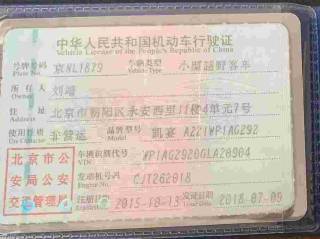 中华人民共和国机动车行驶证
Vehicle License of the People's Republic of China
号牌号码 京NL1879 车辆类型 小型越野客车
Plate No. Vehicle Type
所有人 刘靖
Owner
住址 北京市朝阳区永安西里11楼4单元7号
Address
使用性质 非营运 品牌型号 凯宴
Use Character Model
北京市公安局公安交通管理局
车辆识别代号
发动机号码 CJT262018
Engine No.
注册日期 2015-10-13 发证日期 2018-07-09